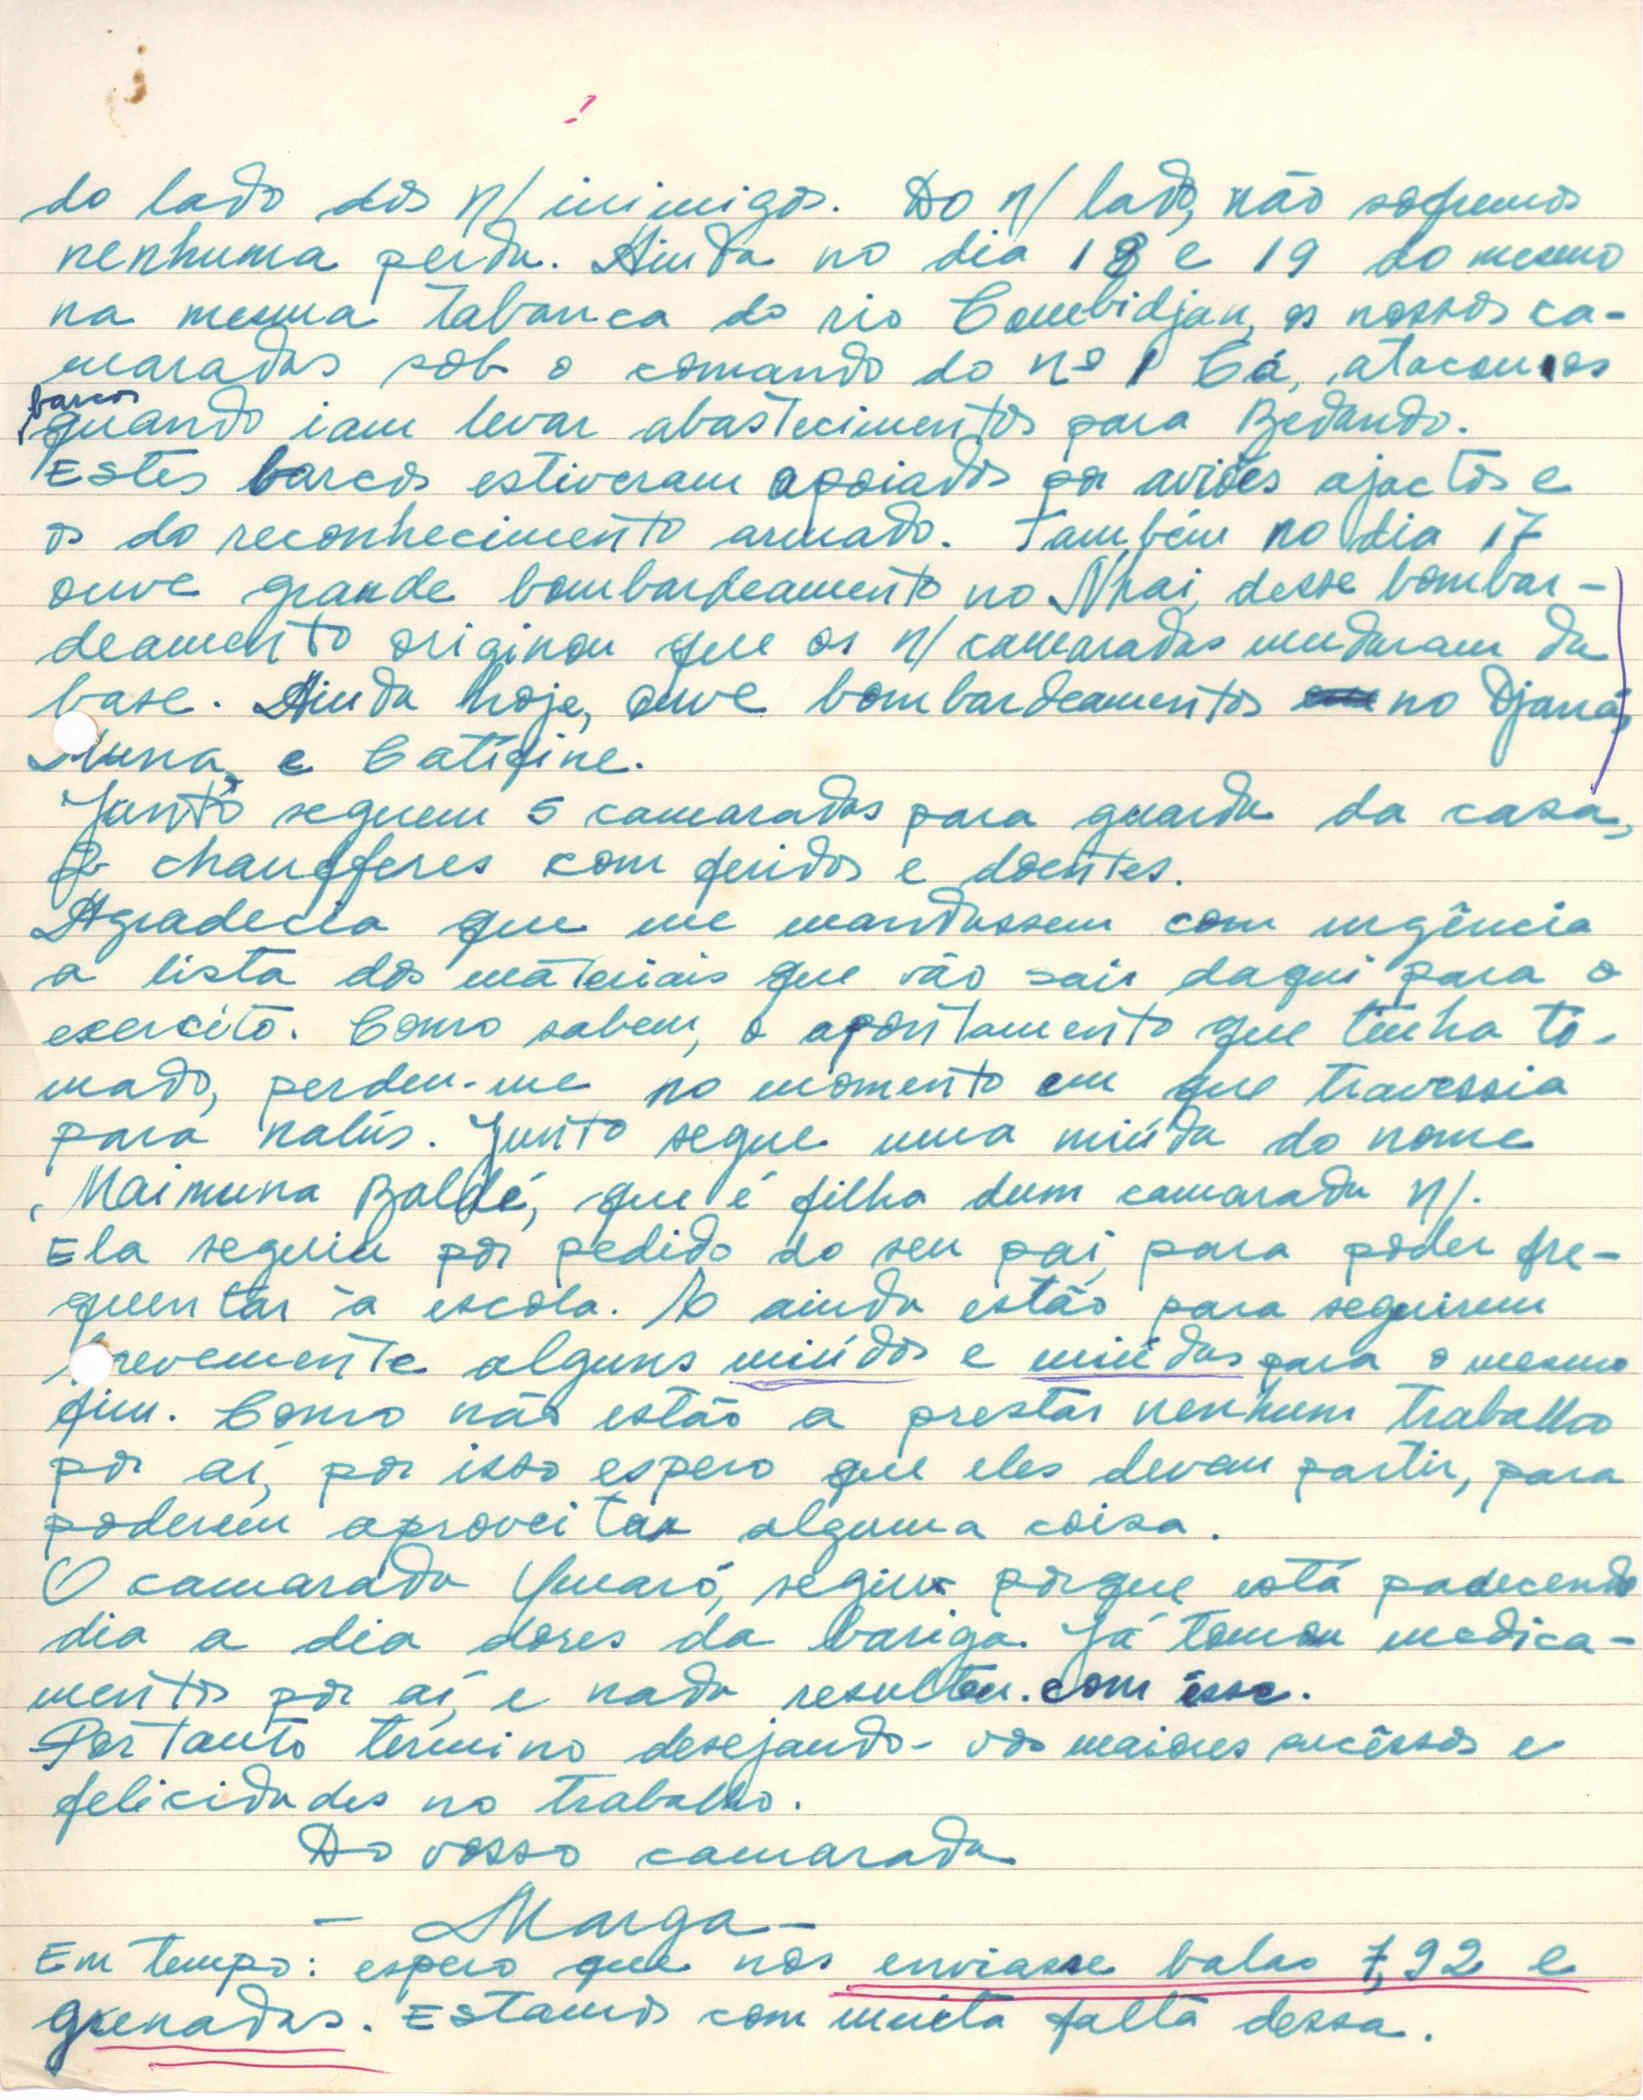 do lado dos n/ inimigos. Do n/ lado, não sofremos
nenhuma perda. Ainda no dia 18 e 19 do mesmo
na mesma tabanca do rio Combidjan, os nossos ca-
maradas sob o comando do nº 1 Cá, atacou os
barcos
quando iam levar abastecimentos para Bedando.
Estes barcos estiveram apoiados por aviões ajactos e
os do reconhecimento armado. Também no dia 17
ouve grande bombardeamento no Nhai, desse bombar-
deamento originou que os n/ camaradas mudaram da
base. Ainda hoje, ouve bombardeamentos no Djaná,
Nuna, e Catifine.
Junto seguem 5 camaradas para guarda da casa,
2 chaufferes com feridos e doentes.
Agradecia que me mandassem com urgência
a lista dos materiais que vão sair daqui para o
exercito. Como sabem, o apontamento que tinha to-
mado, perdeu-me no momento em que travessia
para nalús. Junto segue uma miúda do nome
Maimuna Baldé, que é filha dum camarada n/.
Ela seguiu por pedido do seu pai, para poder fre-
quentar à escola. E ainda estão para seguirem
brevemente alguns miúdos e miúdas para o mesmo
fim. Como não estão a prestar nenhum trabalho
por aí, por isso espero que eles devem partir, para
poderem aproveitar alguma coisa.
O camarada Ymaró, seguiu porque está padecendo
dia a dia dores da bariga. Já tomou medica-
mentos por aí, e nada resultou com isso.
Portanto términо desejando-vos maiores sucêssos e
felicidades no trabalho.
Do vosso camarada
- Marga -
Em tempo: espero que nos enviasse balas 7,92 e
grenadas. Estamos com muita falta dessa.